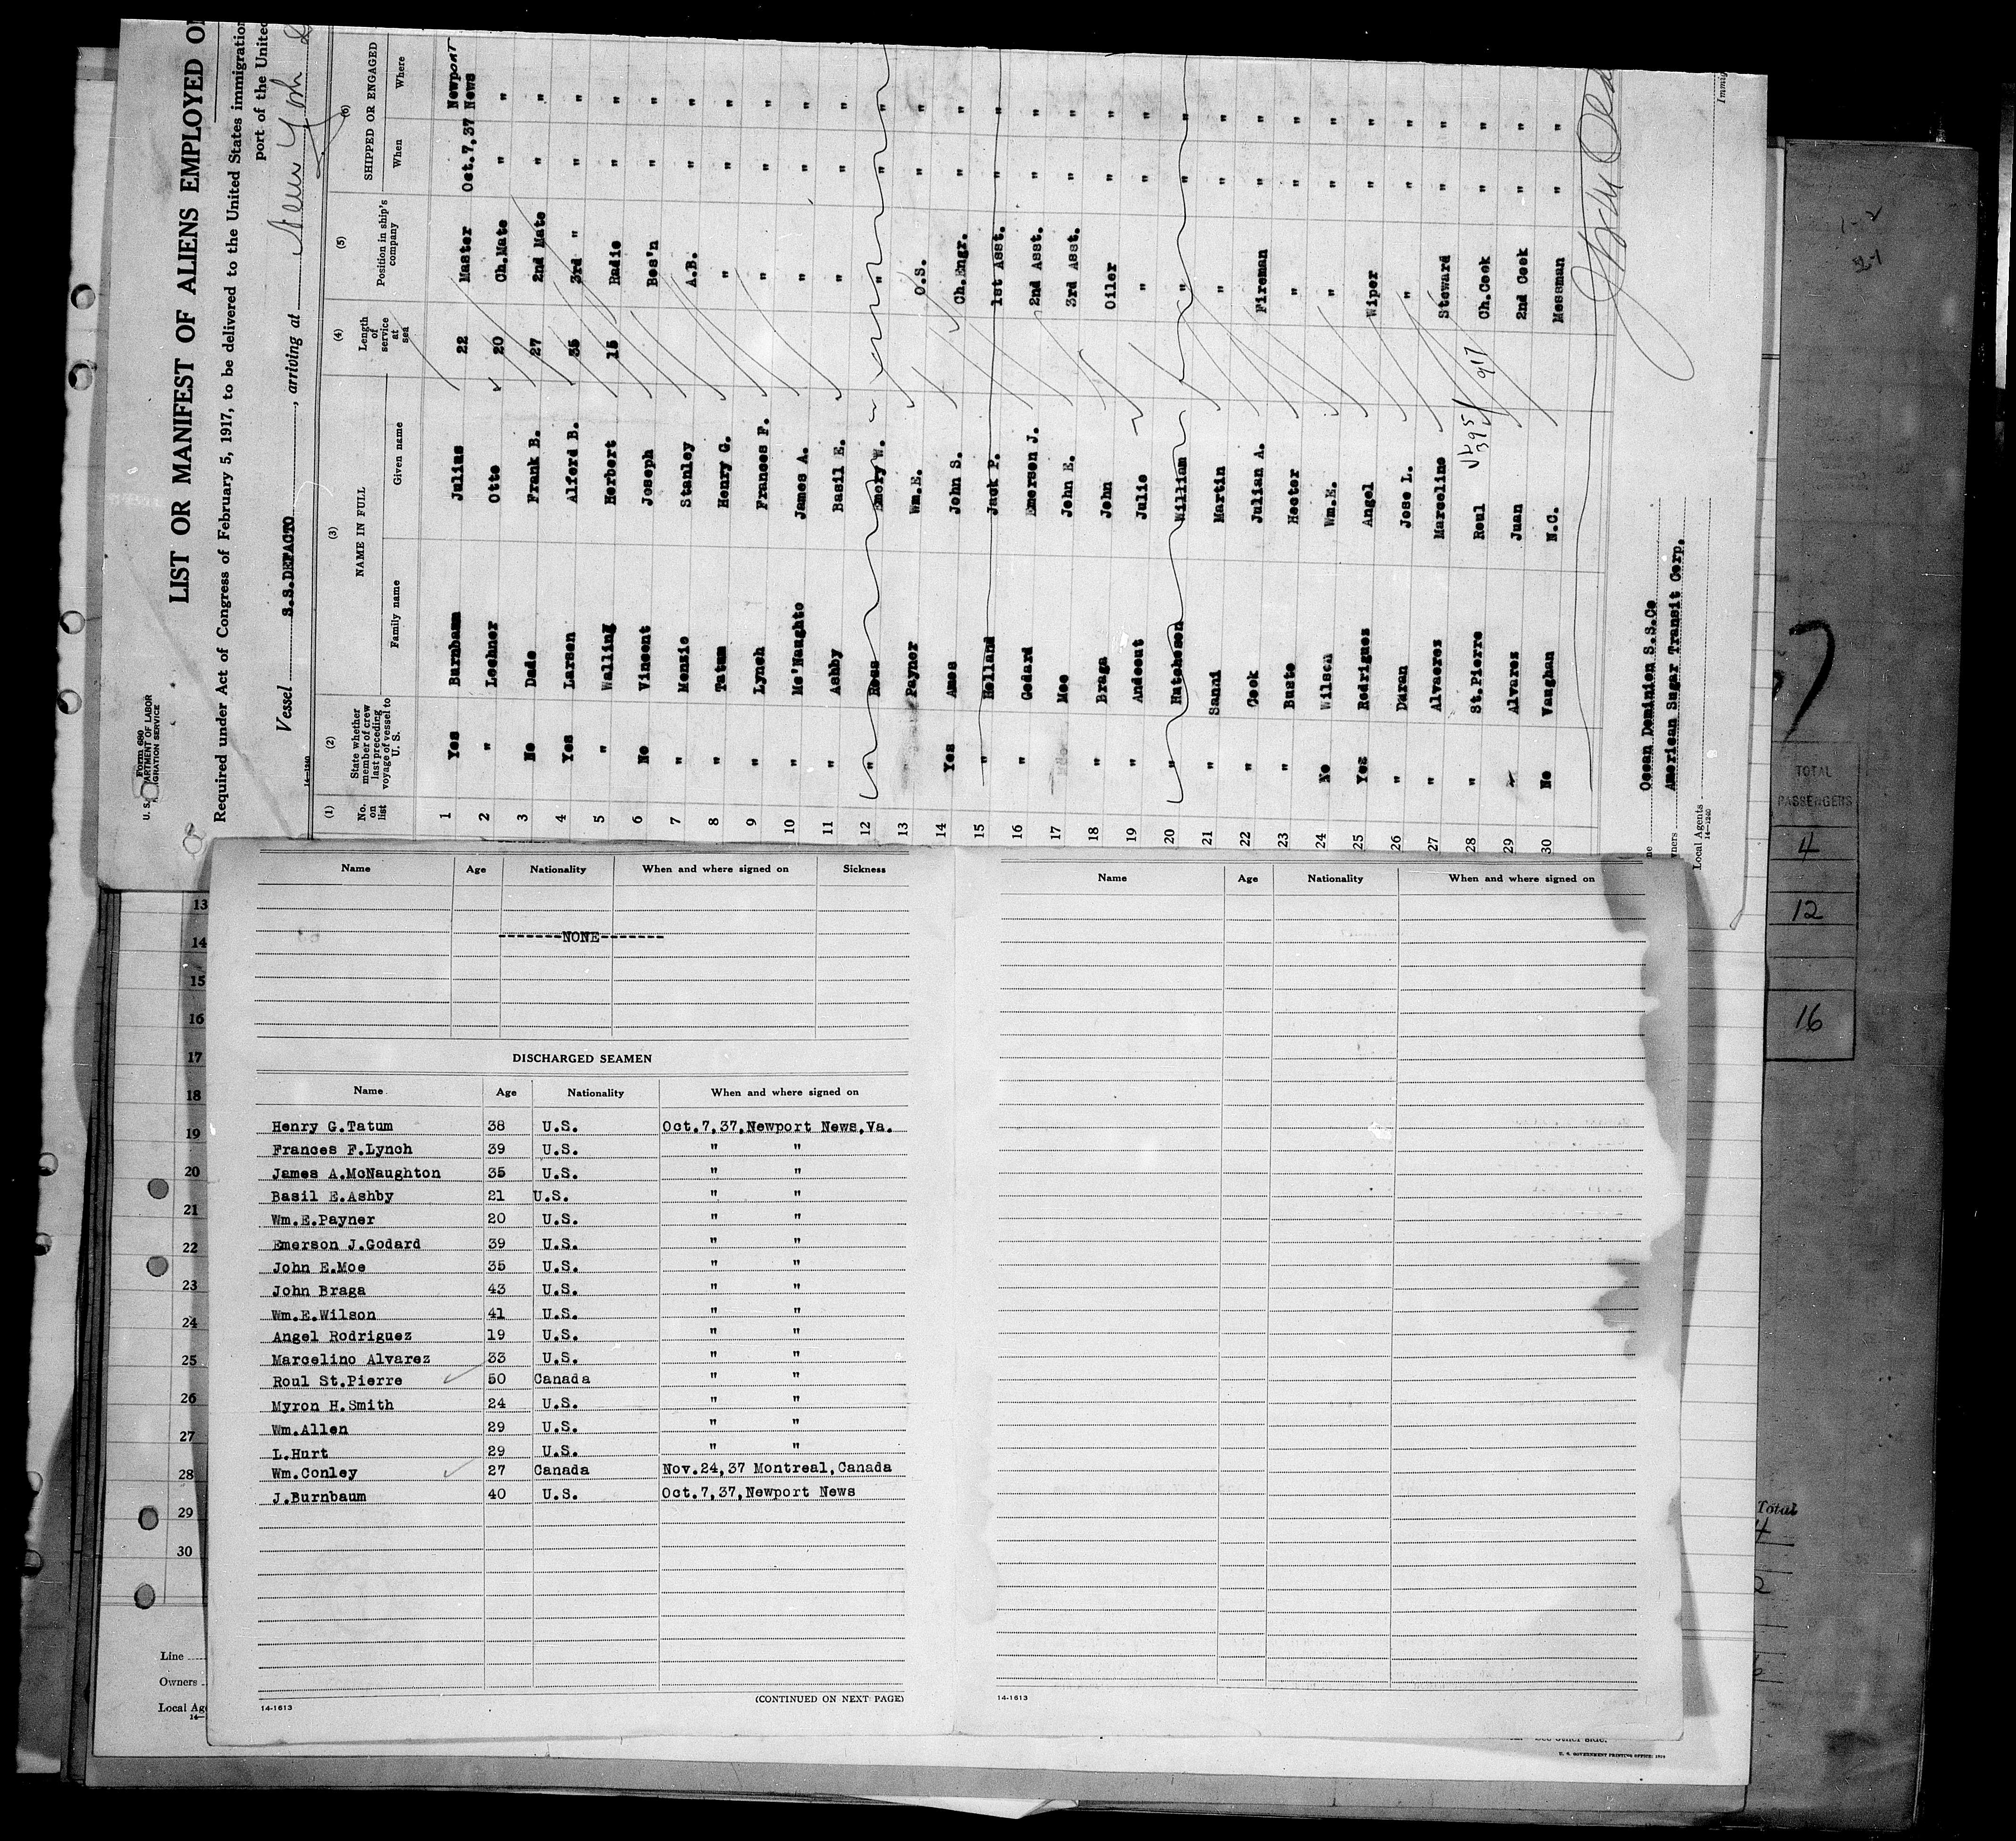 Form 680
U. S. DEPARTMENT OF LABOR
IMMIGRATION SERVICE
LIST OR MANIFEST OF ALIENS EMPLOYED
Required under Act of Congress of February 5, 1917, to be delivered to the United States immigration
port of the United
Vessel S.S.DEFACTO, arriving at New York
14-1240
(1) (2) (3) (4) (5) (6)
No. on list State whether member of crew last preceding voyage of vessel to U. S. NAME IN FULL Length of service at sea Position in ship's company SHIPPED OR ENGAGED
Family name Given name When Where
1 Yes Burnbaum Julius 22 Master Oct.7,37 Newport News
2 " Lechner Otto 20 Ch.Mate " "
3 No Dade Frank B. 27 2nd Mate " "
4 Yes Larsen Alford B. 35 3rd " " "
5 " Walling Herbert 15 Radio " "
6 No Vincent Joseph Bos'n " "
7 " Menzie Stanley A.B. " "
8 " Tatum Henry G. " " "
9 " Lynch Frances F. " " "
10 " Mc'Naughto James A. " " "
11 " Ashby Basil E. " " "
12 " Ross Emory W. " " "
13 Payner Wm.E. O.S. " "
14 Yes Ames John S. Ch.Engr. " "
15 " Holland Jack P. 1st Asst. " "
16 " Godard Emerson J. 2nd Asst. " "
17 Moe John E. 3rd Asst. " "
18 " Braga John Oiler " "
19 " Andeout Julio " " "
20 " Hutcheson William " " "
21 " Sanni Martin " " "
22 " Cook Julian A. Fireman " "
23 " Busto Hector " " "
24 No Wilson Wm.E. " " "
25 Yes Rodrigues Angel Wiper " "
26 " Daran Jose L. " " "
27 " Alvaerez Marceline Steward " "
28 " St.Pierre Roul Ch.Cook " "
29 Alvarez Juan 2nd Cook " "
30 No Vaughan N.C. Messman " "
Ocean Dominion S.S.Co
American Sugar Transit Corp.
Local Agents
14-1240
TOTAL
PASSENGERS
4
12
16
Name Age Nationality When and where signed on Sickness
-------NONE-------
DISCHARGED SEAMEN
Name Age Nationality When and where signed on
Henry G.Tatum 38 U.S. Oct.7,37,Newport News,Va.
Frances F.Lynch 39 U.S. " "
James A.McNaughton 35 U.S. " "
Basil E.Ashby 21 U.S. " "
Wm.E.Payner 20 U.S. " "
Emerson J.Godard 39 U.S. " "
John E.Moe 35 U.S. " "
John Braga 43 U.S. " "
Wm.E.Wilson 41 U.S. " "
Angel Rodriguez 19 U.S. " "
Marcelino Alvarez 33 U.S. " "
Roul St.Pierre 50 Canada " "
Myron H.Smith 24 U.S. " "
Wm.Allen 29 U.S. " "
L.Hurt 29 U.S. " "
Wm.Conley 27 Canada Nov.24,37 Montreal,Canada
J.Burnbaum 40 U.S. Oct.7,37,Newport News
14-1613
(CONTINUED ON NEXT PAGE)
Name Age Nationality When and where signed on
14-1613
13
14
15
16
17
18
19
20
21
22
23
24
25
26
27
28
29
30
Line
Owners
Local Ag
Total
U. S. GOVERNMENT PRINTING OFFICE